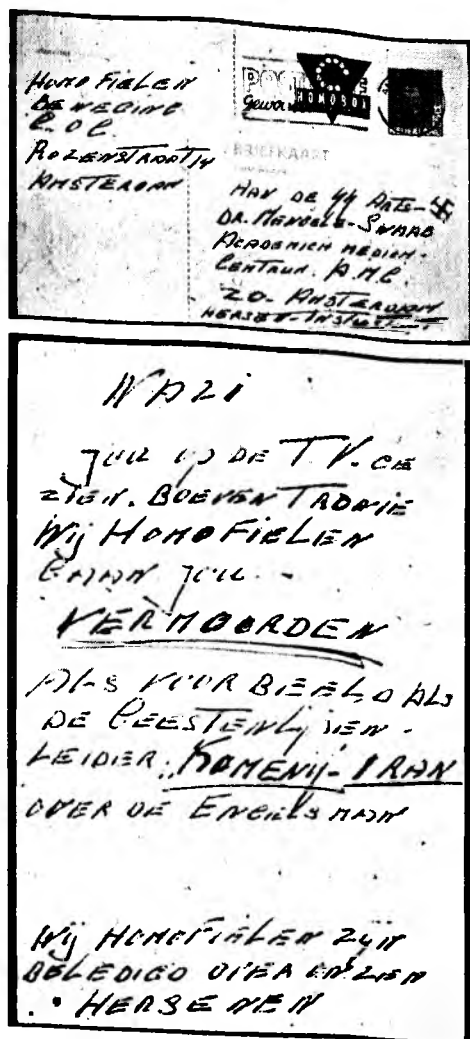 HOMOFIELEN
BEWEGING
C.O.C.
ROZENSTRAAT 14
AMSTERDAM
POST
Gewoon
HOMODOK
BRIEFKAART
AAN DE SS ARTS-
DR. MENGELE-SWAAB
ACADEMICH MEDICH-
CENTRUM. A.M.C.
Z.O. AMSTERDAM
HERSEN-INSTUUT
NAZI
JUU OP DE T.V. GE
ZIEN. BOEVEN TRONIE
Wij HOMOFIELEN
GAAN JUU
VERMOORDEN
ALS VOORBEELD ALS
DE GEESTENLIJKEN-
LEIDER, KOMENIJ-IRAN
OVER DE ENGELSMAN
Wij HOMOFIELEN ZIJN
BELEDIGD OVER ONZEN
HERSENEN